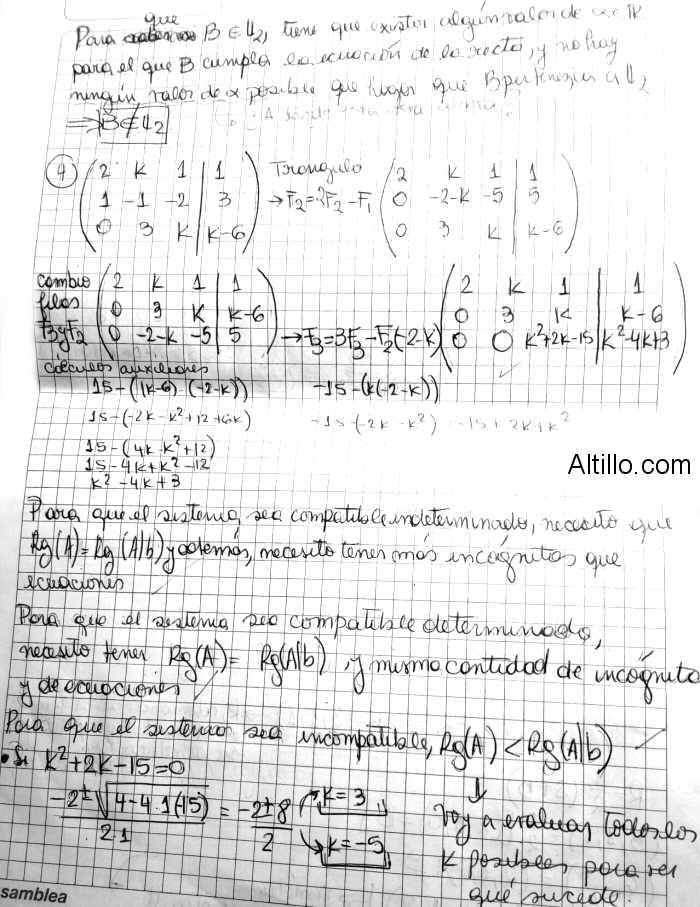 que
Para B ∈ L2, tiene que existir algún valor de α ∈ ℝ
para el que B cumpla la ecuación de la recta, y no hay
ningún valor de α posible que haga que B pertenezca a L2
⇒ B ∉ L2
4 ( 2 k 1 | 1 ) Triangulo ( 2 k 1 | 1 )
( 1 -1 -2 | 3 ) → F2=2F2-F1 ( 0 -2-k -5 | 5 )
( 0 3 k | k-6 ) ( 0 3 k | k-6 )
cambio ( 2 k 1 | 1 ) ( 2 k 1 | 1 )
filas ( 0 3 k | k-6 ) ( 0 3 k | k-6 )
F3yF2 ( 0 -2-k -5 | 5 ) → F3=3F3-F2(-2-k) ( 0 0 k²+2k-15 | k²-4k+3 )
cálculos auxiliares
15-((k-6)·(-2-k)) -15-(k(-2-k))
15-(-2k-k²+12+6k) -15-(-2k-k²) -15+2k+k²
15-(4k-k²+12)
15-4k+k²-12
k²-4k+3
Altillo.com
Para que el sistema sea compatible indeterminado, necesito que
Rg(A)=Rg(A|b) y además, necesito tener más incógnitas que
ecuaciones
Para que el sistema sea compatible determinado,
necesito tener Rg(A)= Rg(A|b) y misma cantidad de incógnita
y de ecuaciones
Para que el sistema sea incompatible, Rg(A) < Rg(A|b)
• Si k²+2k-15=0
-2±√4-4·1(-15) / 2·1 = -2±8 / 2 → k=3
→ k=-5
↓
Voy a evaluar todos los
k posibles para ver
qué sucede.
samblea